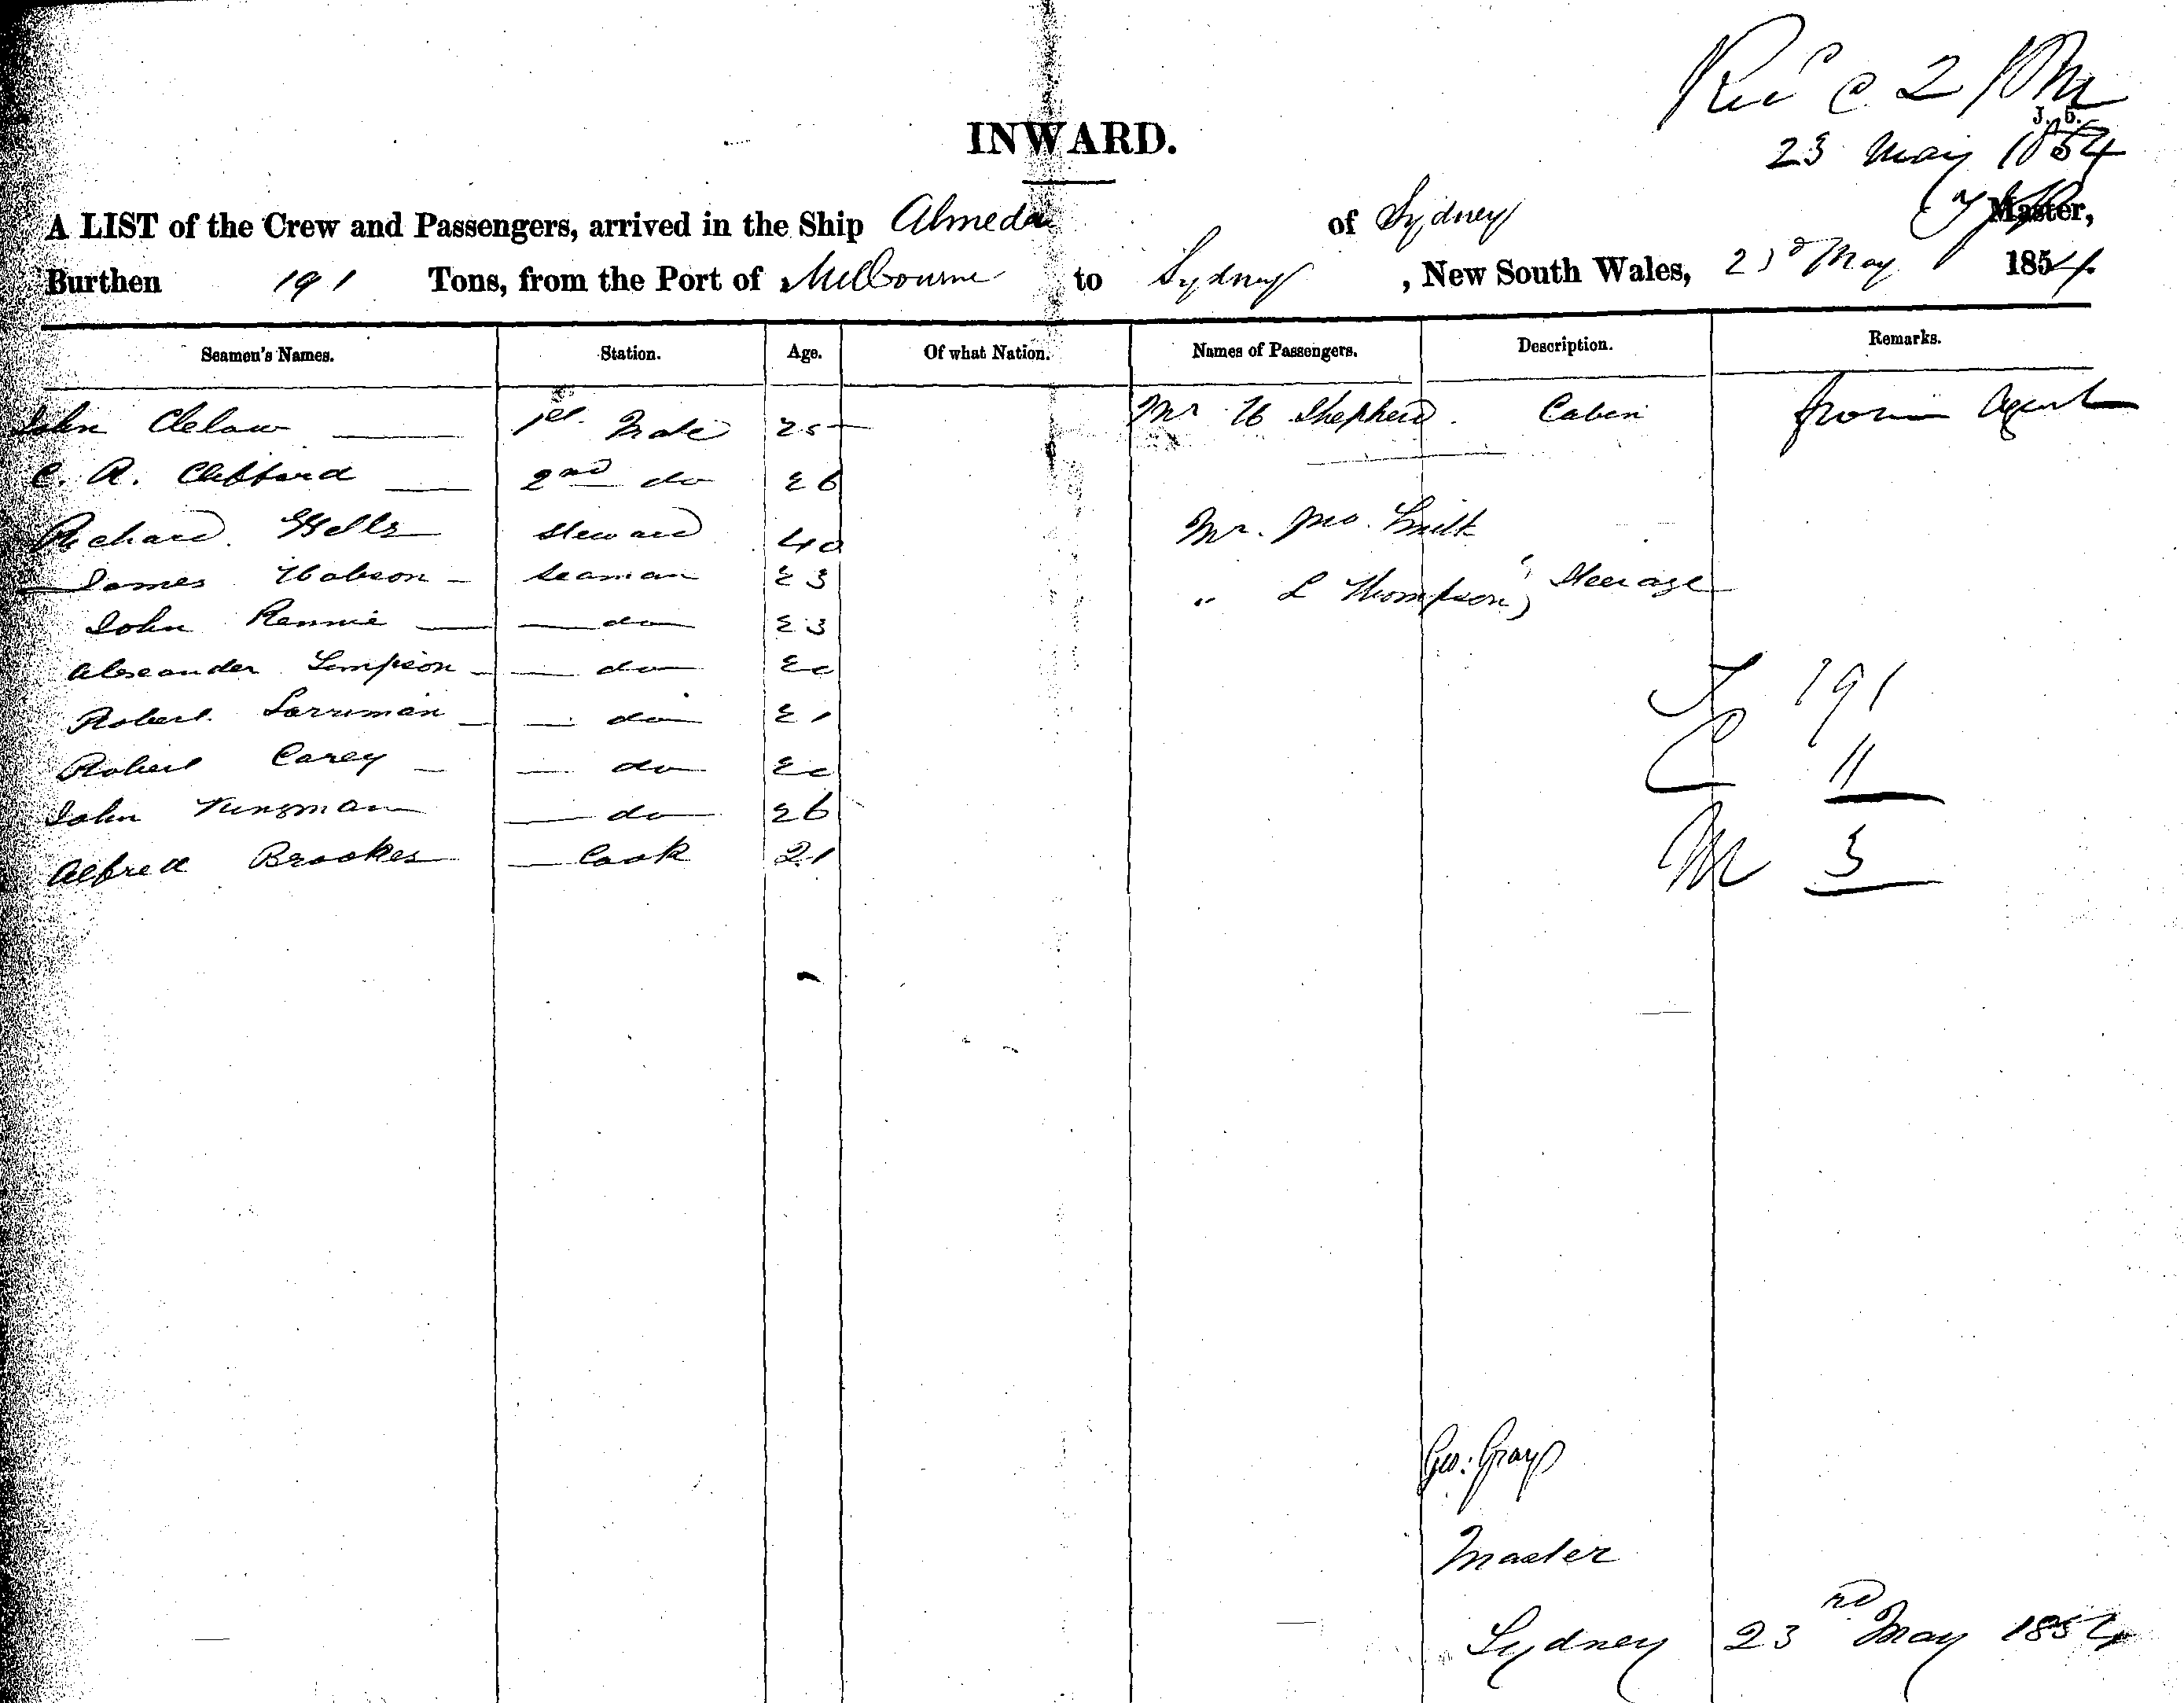 Recd @ 2 PM
J. 5.
23 May 1854
INWARD.
A LIST of the Crew and Passengers, arrived in the Ship Almeda of Sydney Master,
Burthen 191 Tons, from the Port of Melbourne to Sydney, New South Wales, 23d May 1854.
Seamen's Names. Station. Age. Of what Nation. Names of Passengers. Description. Remarks.
John 1st Mate 25 Mr H Shepherd. Cabin from Agent
C. R. Clifford 2nd do 26
Richard Wells Steward 40 Mr. Jno. Smith
James Hobson seaman 23 " L Thompson } Steerage
John Rennie do 23
Alexander Simpson do 20
Robert do 21
Robert Carey do 20
John Kingman do 26
Alfred Brookes Cook 21
T 191
C 11
M 3
Geo: Gray
Master
Sydney 23rd May 1854